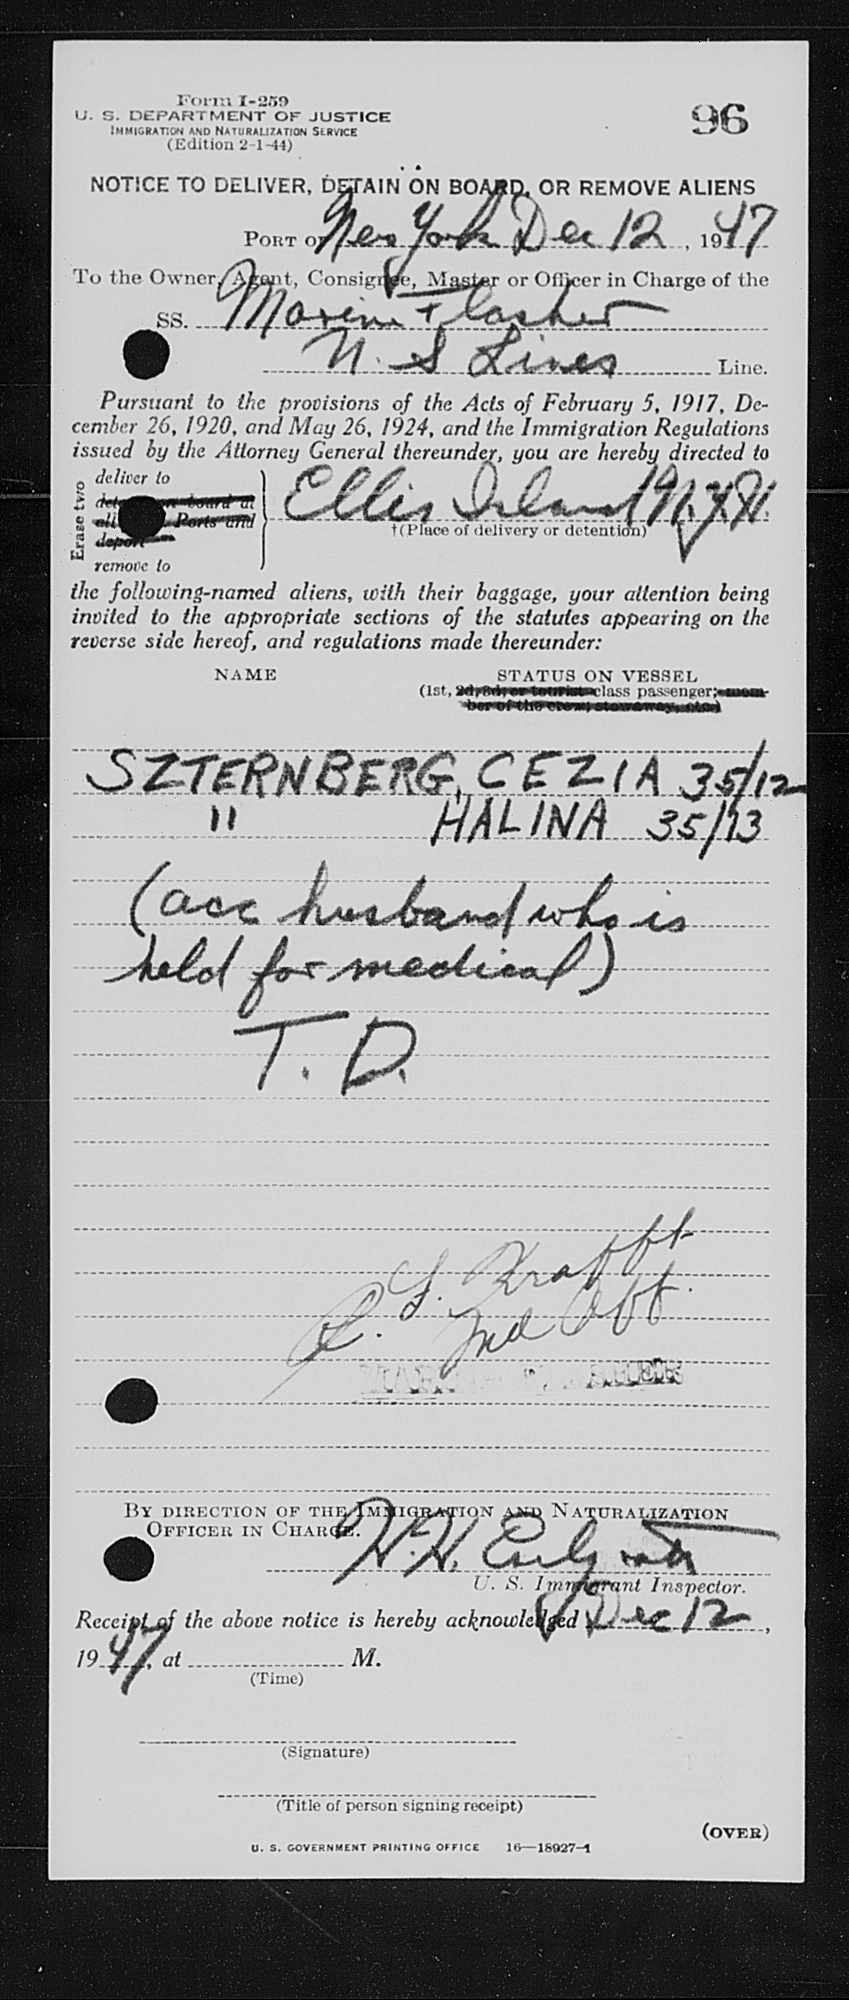 Form I-259
U. S. DEPARTMENT OF JUSTICE
IMMIGRATION AND NATURALIZATION SERVICE
(Edition 2-1-44)
96
NOTICE TO DELIVER, DETAIN ON BOARD, OR REMOVE ALIENS
PORT OF New York Dec 12, 1947
To the Owner, Agent, Consignee, Master or Officer in Charge of the
SS. Marine Flasher
U. S Lines Line.
Pursuant to the provisions of the Acts of February 5, 1917, De-
cember 26, 1920, and May 26, 1924, and the Immigration Regulations
issued by the Attorney General thereunder, you are hereby directed to
Erase two
deliver to
detain on board at
all Ports and
deport
remove to
Ellis Island N.Y.H.
†(Place of delivery or detention)
the following-named aliens, with their baggage, your attention being
invited to the appropriate sections of the statutes appearing on the
reverse side hereof, and regulations made thereunder:
NAME STATUS ON VESSEL
(1st, 2d, 3d, or tourist class passenger; mem-
ber of the crew; stowaway, etc.)
SZTERNBERG, CEZIA 35/12
" HALINA 35/13
(acc husband who is
held for medical)
T. D.
Krafft
2nd Off.
BY DIRECTION OF THE IMMIGRATION AND NATURALIZATION
OFFICER IN CHARGE.
H.H.
U. S. Immigrant Inspector.
Receipt of the above notice is hereby acknowledged Dec 12,
1947, at M.
(Time)
(Signature)
(Title of person signing receipt)
(OVER)
U. S. GOVERNMENT PRINTING OFFICE 16—18927-1